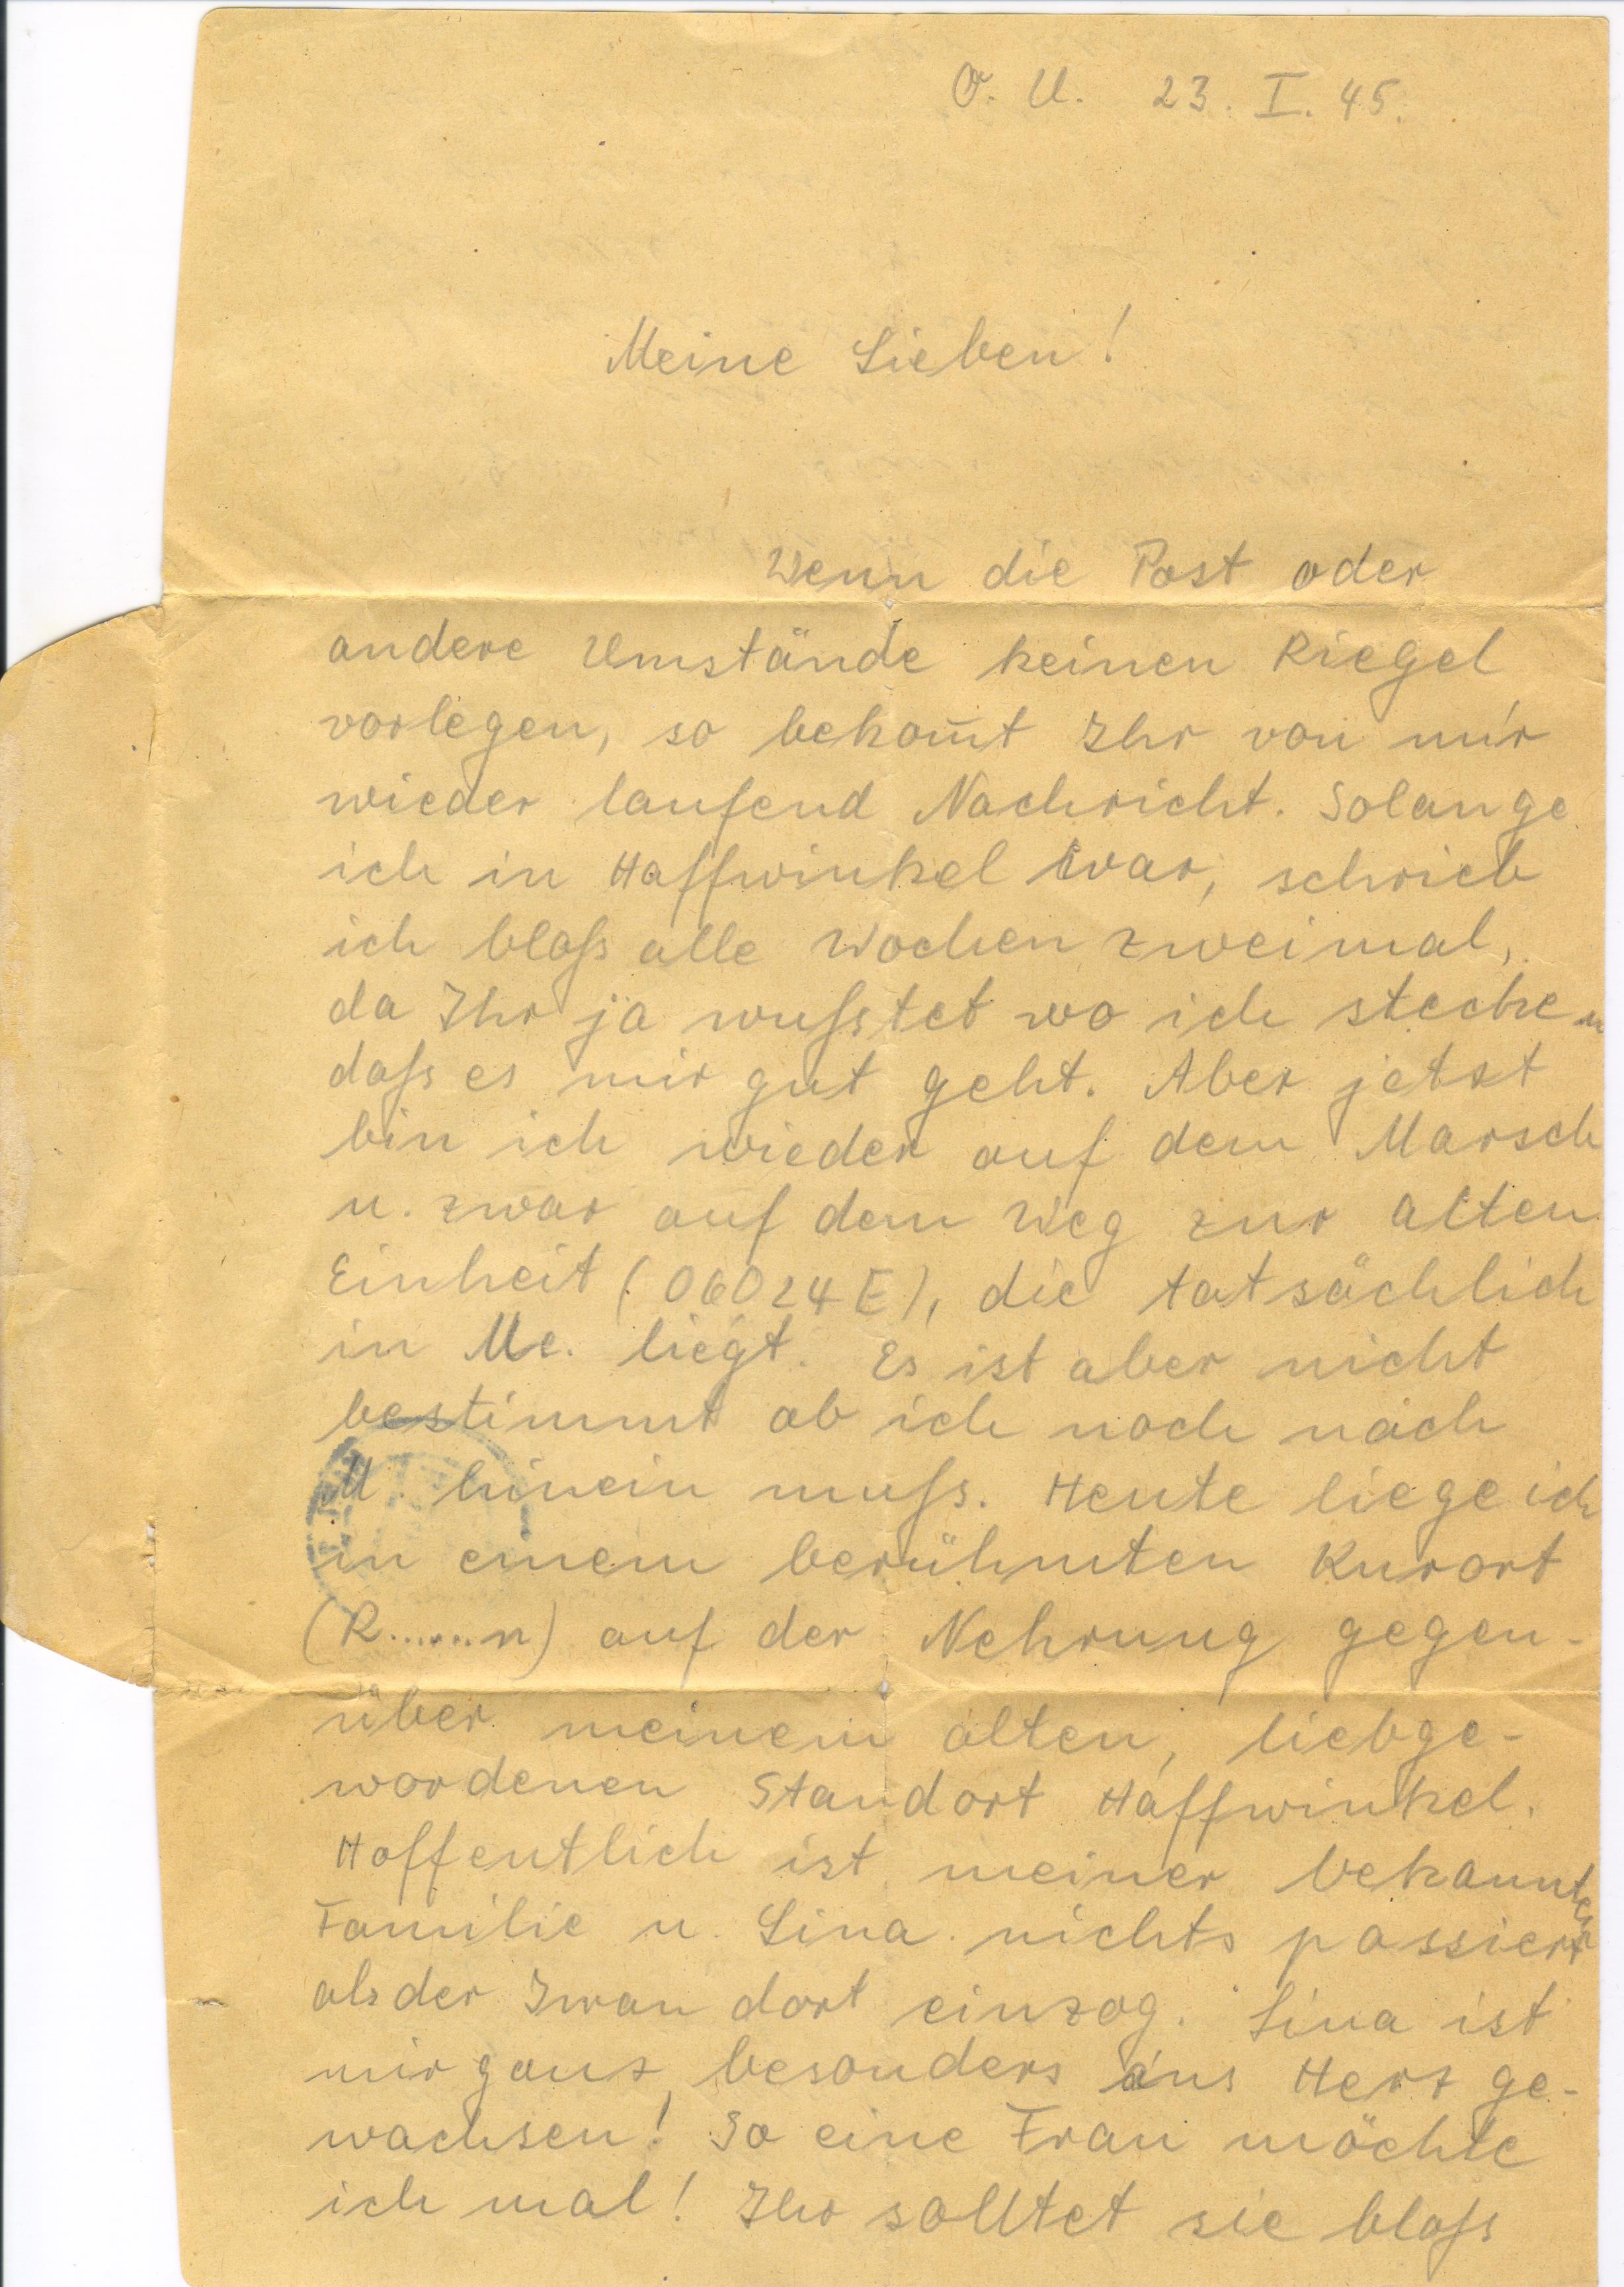 O. U. 23. I. 45.
Meine Lieben!
Wenn die Post oder
andere Umstände keinen Riegel
vorlegen, so bekom̅t Ihr von mir
wieder laufend Nachricht. Solange
ich in Haffwinkel war, schrieb
ich bloß alle Wochen zweimal,
da Ihr ja wußtet wo ich stecke u
daß es mir gut geht. Aber jetzt
bin ich wieder auf dem Marsch
u. zwar auf dem Weg zur alten
Einheit (06024E), die tatsächlich
in Me. liegt. Es ist aber nicht
bestimmt ob ich noch nach
M. hinein muß. Heute liege ich
in einem berühmten Kurort
(R......n) auf der Nehrung gegen-
über meinem alten, liebge-
wordenen Standort Haffwinkel.
Hoffentlich ist meiner bekannten
Familie u. Lina nichts passiert
als der Iwan dort einzog. Lina ist
mir ganz besonders ans Herz ge-
wachsen! So eine Frau möchte
ich mal! Ihr solltet sie bloß